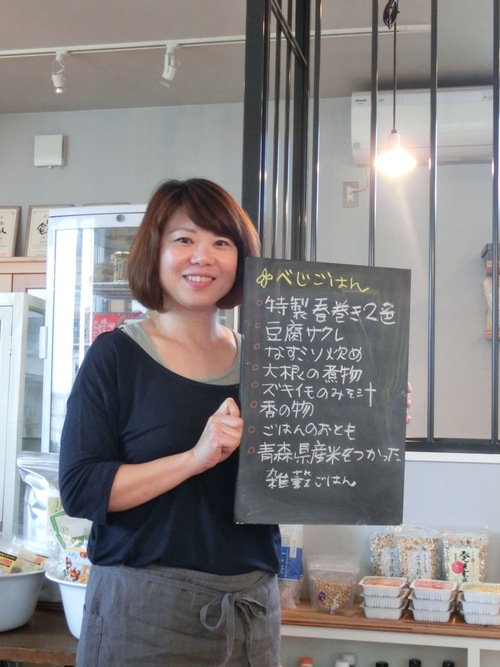 べじごはん
特製春巻き2色
豆腐サクレ
なすミソ炒め
大根の煮物
ズキイモのみそ汁
香の物
ごはんのおとも
青森県産米をつかった
雑穀ごはん